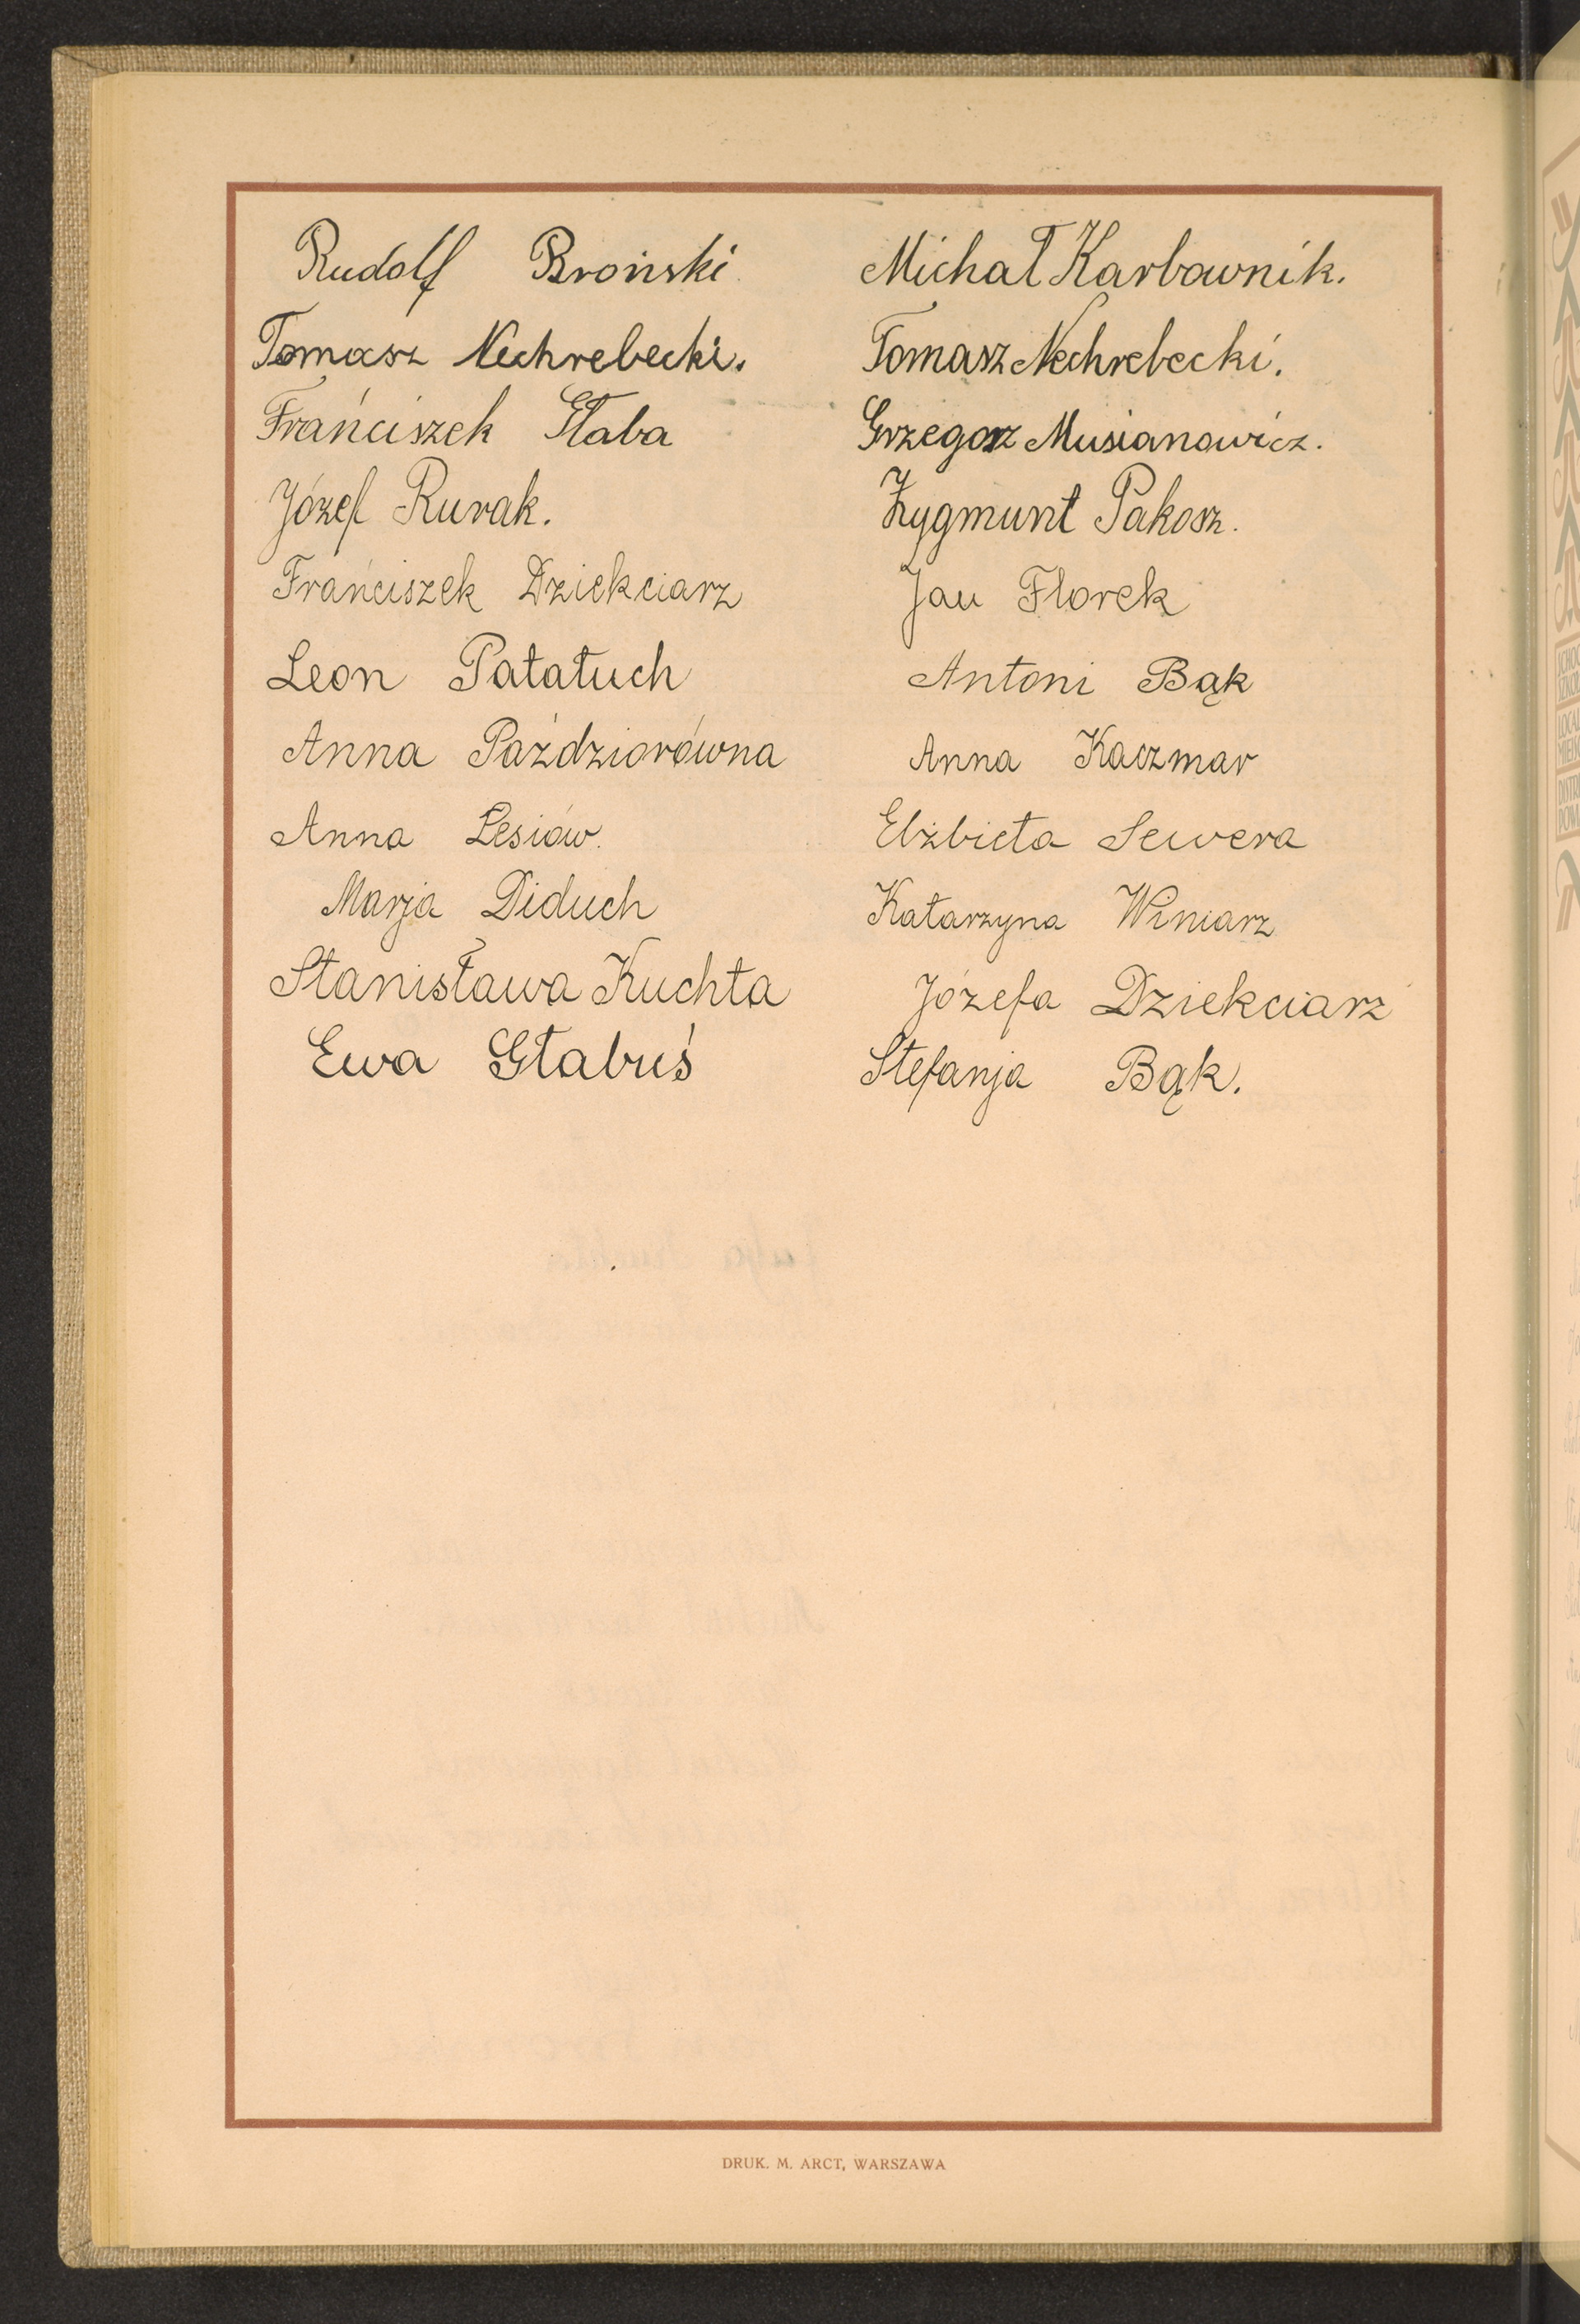 Rudolf Broński
Tomasz Nechrebecki.
Franciszek Słaba
Józef Rurak.
Franciszek Dziekciarz
Leon Patałuch
Anna Paździorówna
Anna Lesiów.
Marja Diduch
Stanisława Kuchta
Ewa Głabuś
Michał Karbownik.
Tomasz Nechrebecki.
Grzegorz Musianowicz.
Zygmunt Pakosz.
Jan Florek
Antoni Bąk
Anna Kaczmar
Elżbieta Sewera
Katarzyna Winiarz
Józefa Dziekciarz
Stefanja Bąk.
DRUK. M. ARCT, WARSZAWA